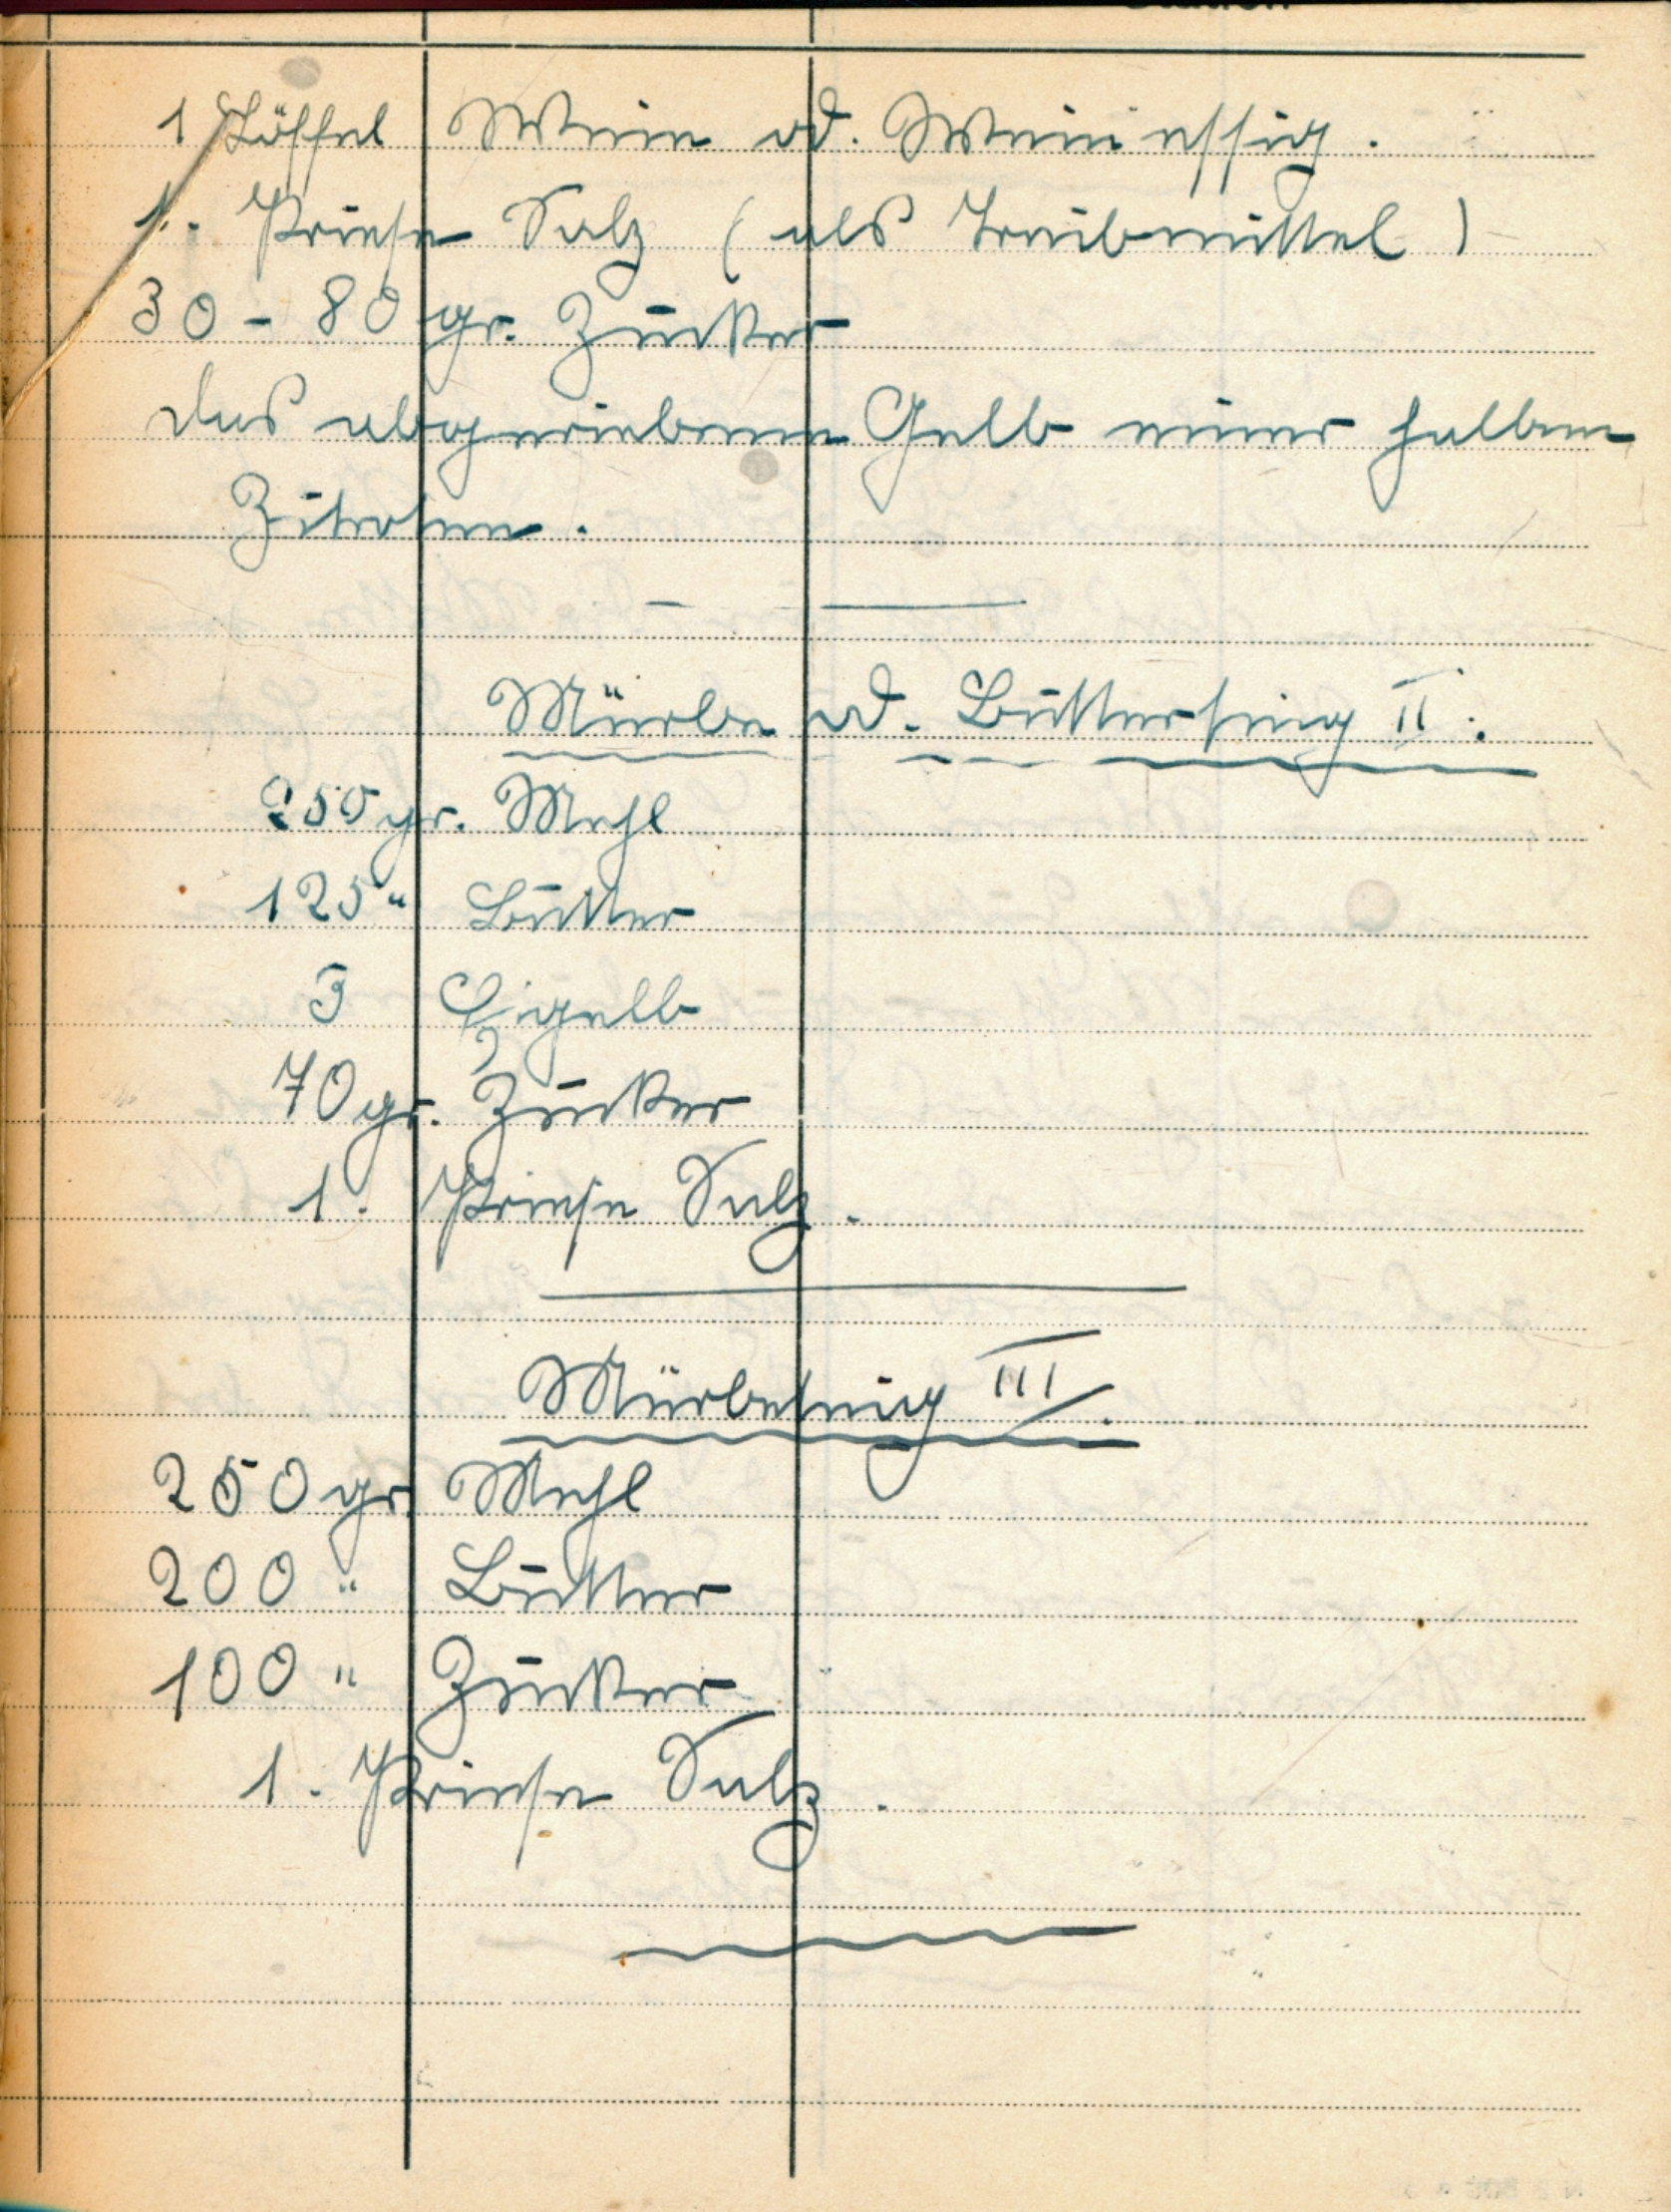 1 Löffel Wein od. Weinessig.
1. Priese Salz (als Treibmittel)
30 - 80 gr. Zucker
das abgeriebene Gelb einer halben
Zitrohne.
Mürbe od. Butterteig II.
250 gr. Mehl
125 " Butter
3 Eigelb
70 gr. Zucker
1. Priese Salz.
Mürbeteig III.
250 gr. Mehl
200 " Butter
100 " Zucker
1. Priese Salz.